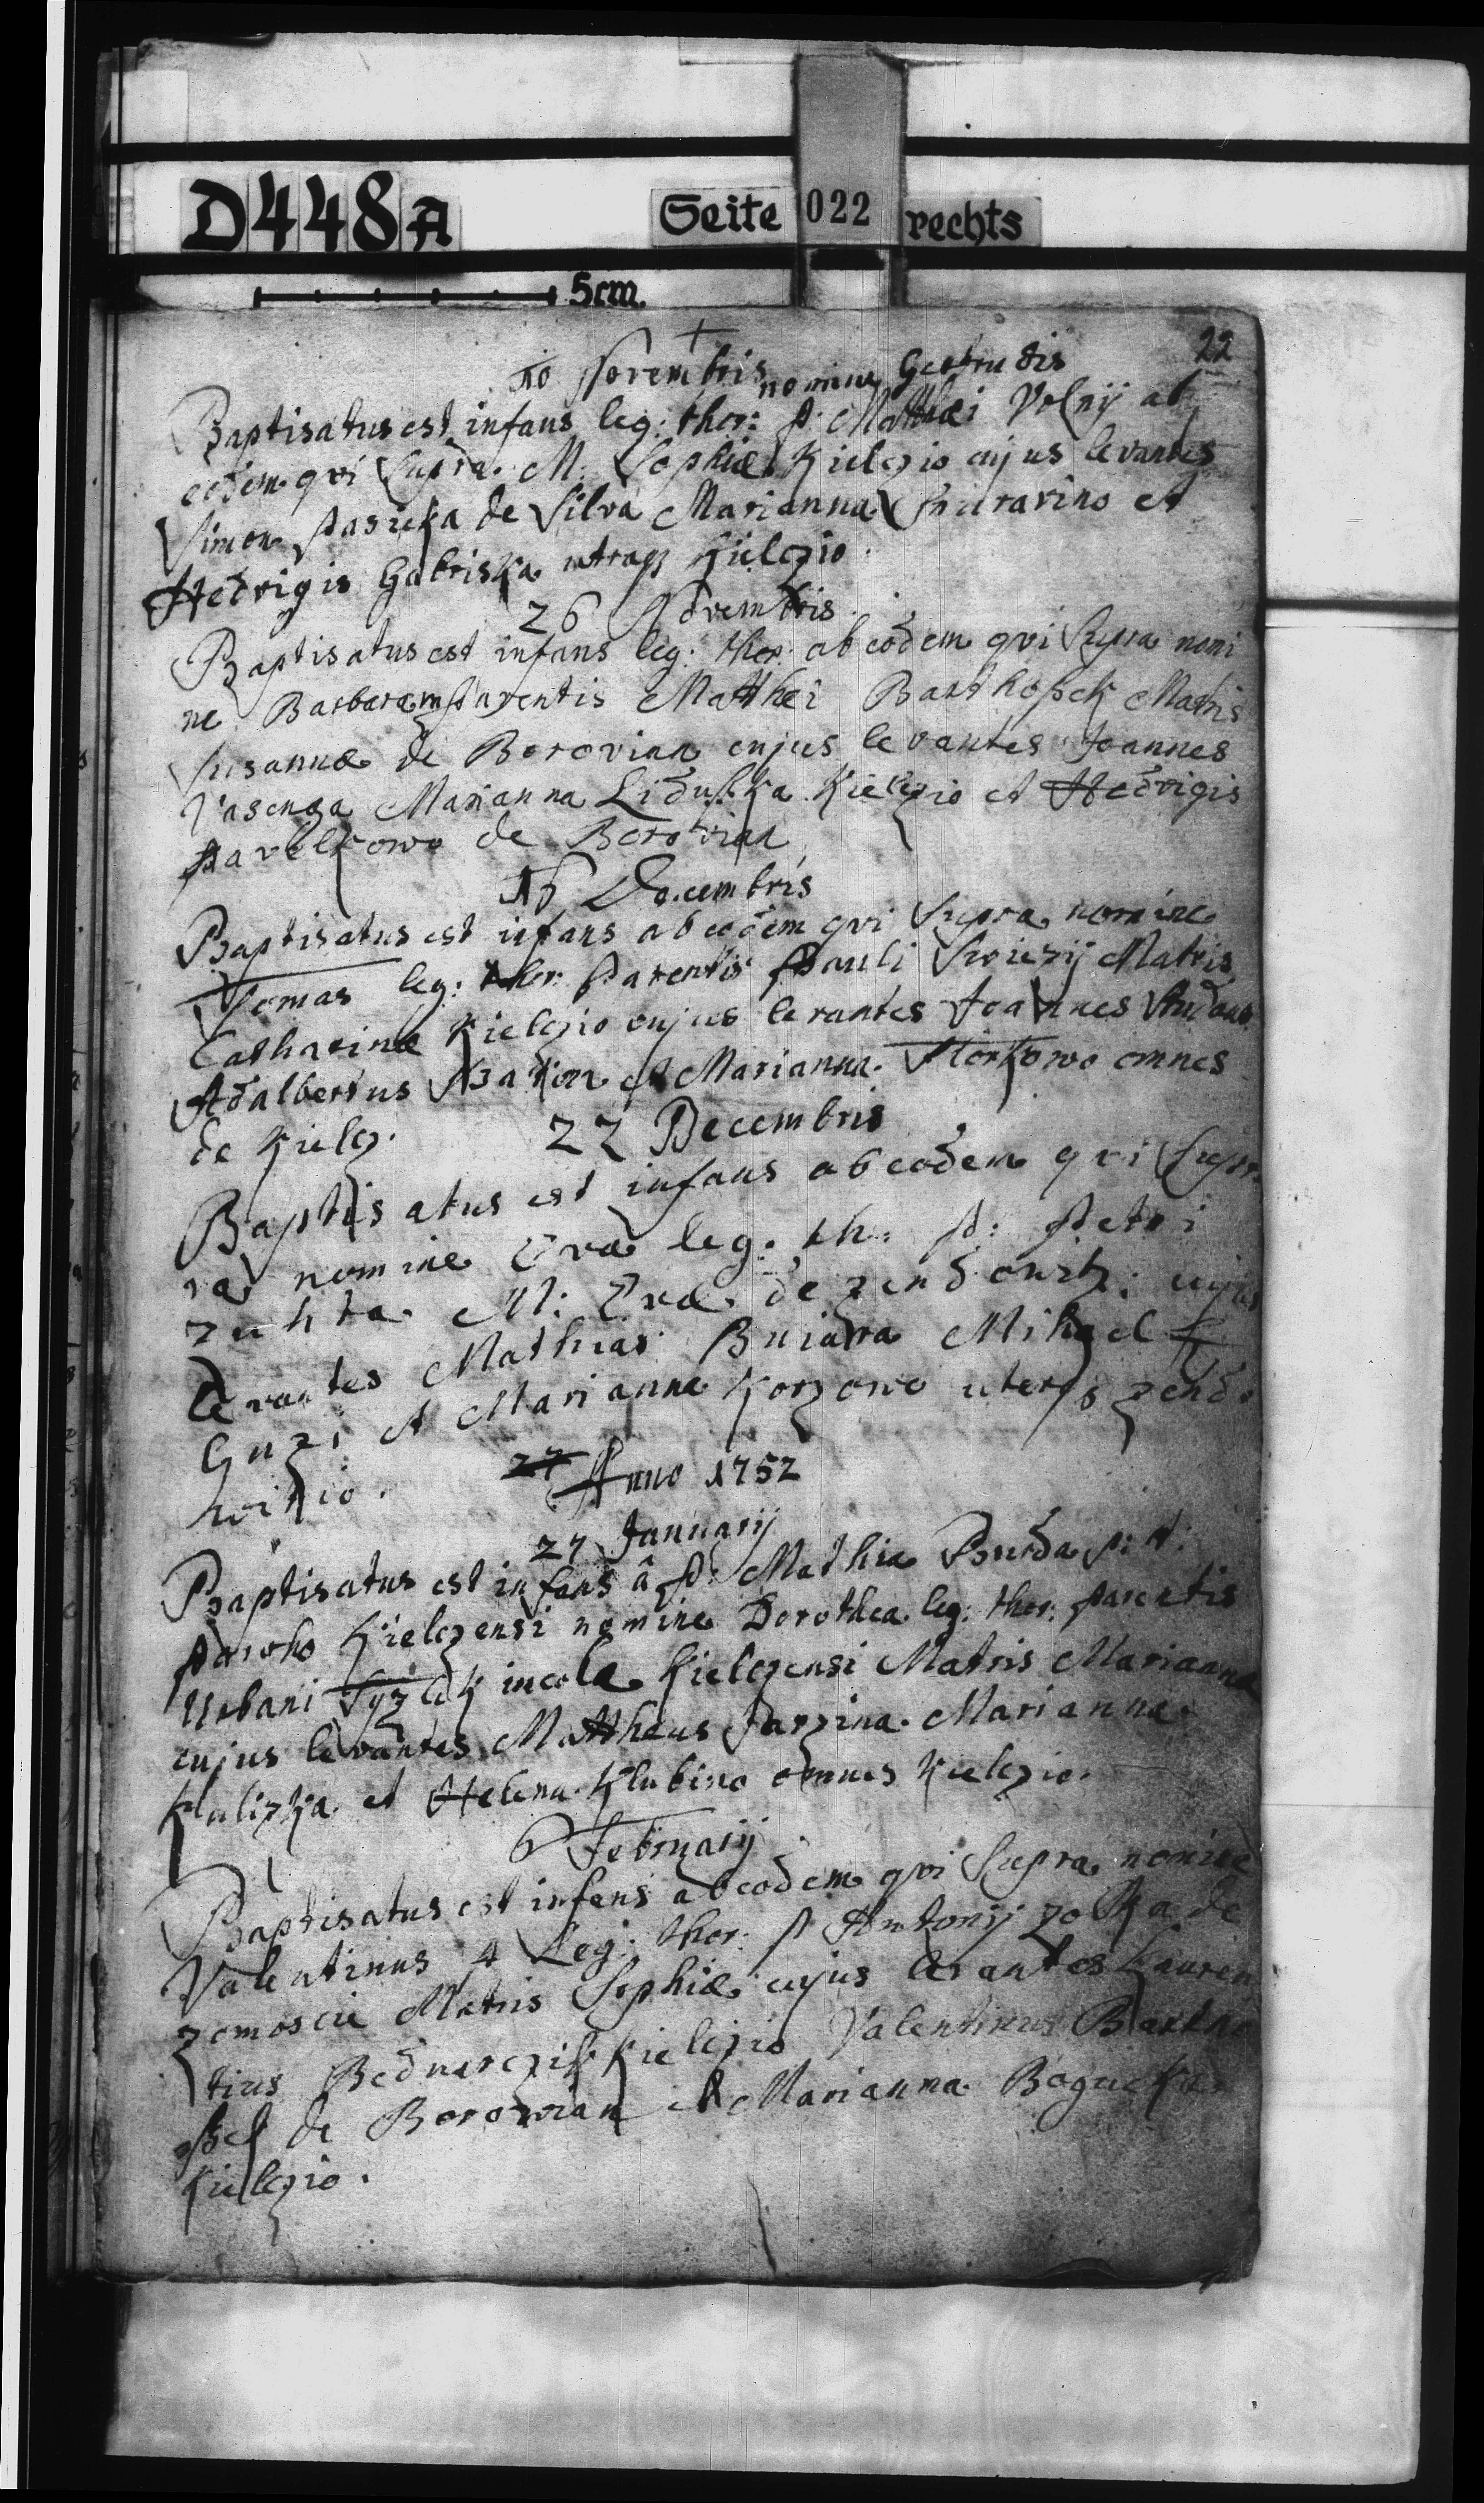 D448A Seite 022 rechts
5cm.
22
10 Novembris nomine Gertrudis
Baptisatus est infans leg: thor: P: Matthæi Volnij ab
eodem qvi Supra. M: Sophiæ Kielczio cujus levantes
Simon Pasieka de Silva Marianna et
Hedvigis Gabriska utraqz Kielczio.
26 Novembris
Baptisatus est infans leg: thor: ab eodem qvi Supra nomi
ne Barbaram Parentis Matthei Barthoßek Matris
Susannæ de Borovian cujus levantes Joannes
Marianna Liduska Kielczio et Hedvigis
Pavelkowo de Borovian
16 Decembris
Baptisatus est infans ab eodem qvi Supra nomine
Tomas leg: thor: Parentis Pauli Swiezij Matris
Catharinæ Kielczio cujus levantes Joannes
Adalbertus et Marianna omnes
de Kielcz.
22 Decembris
Baptisatus est infans ab eodem qvi Sup
ra nomine Eva leg: th: P: Petri
zuhta M: Evæ de zendowitz: cujus
levantes Mathias Buiara Mihael
Guzi et Marianna Korzowo uterqs zend
witzio.
27 Anno 1752
27 Januarij
Baptisatus est infans â P: Mathia Burda p: t:
Paroho Kielczensi nomine Dorothea leg: thor: Parentis
Urbani incola Kielczensi Matris Marianna
cujus levantes Mattheus Parzina Marianna
Kulizka et Helena Klubino omnes Kielczio.
6 Februarij
Baptisatus est infans ab eodem qvi Supra nomine
Valentinus Leg: thor: P Antonij zolka de
zomoscie Matris Sophiæ cujus levantes Lauren
tius Bednarczik Kielczio Valentinus Bartho
ßek de Borowian et Marianna Boguckar
Kielczio.